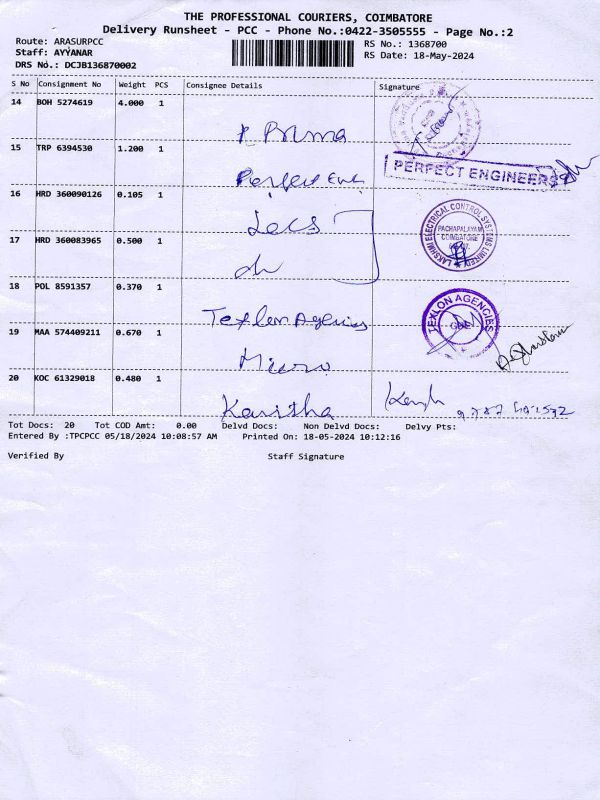 THE PROFESSIONAL COURIERS, COIMBATORE
Delivery Runsheet - PCC - Phone No.:0422-3505555 - Page No.:2
Route: ARASURPCC
Staff: AYYANAR
DRS No.: DCJB136870002
RS No.: 1368700
RS Date: 18-May-2024
S No Consignment No Weight PCS Consignee Details Signature
14 BOH 5274619 4.000 1
15 TRP 6394530 1.200 1
Perfect Eng
PERFECT ENGINEERS
16 HRD 360090126 0.105 1
Lecs
LAKSHMI ELECTRICAL CONTROL SYSTEMS LIMITED
PACHAPALAYAM
COIMBATORE
17 HRD 360083965 0.500 1
18 POL 8591357 0.370 1
Texlon Agencies
TEXLON AGENCIES
19 MAA 574409211 0.670 1
Micro
20 KOC 61329018 0.480 1
Kavitha
Tot Docs: 20 Tot COD Amt: 0.00 Delvd Docs: Non Delvd Docs: Delvy Pts:
Entered By :TPCPCC 05/18/2024 10:08:57 AM Printed On: 18-05-2024 10:12:16
Verified By Staff Signature